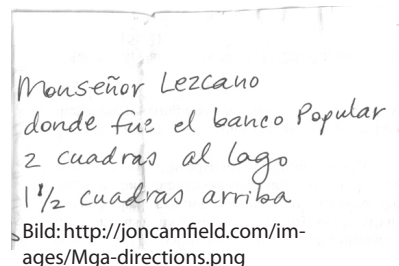 Monseñor Lezcano
donde fue el banco Popular
2 cuadras al lago
1 1/2 cuadras arriba
Bild: http://joncamfield.com/im-
ages/Mga-directions.png